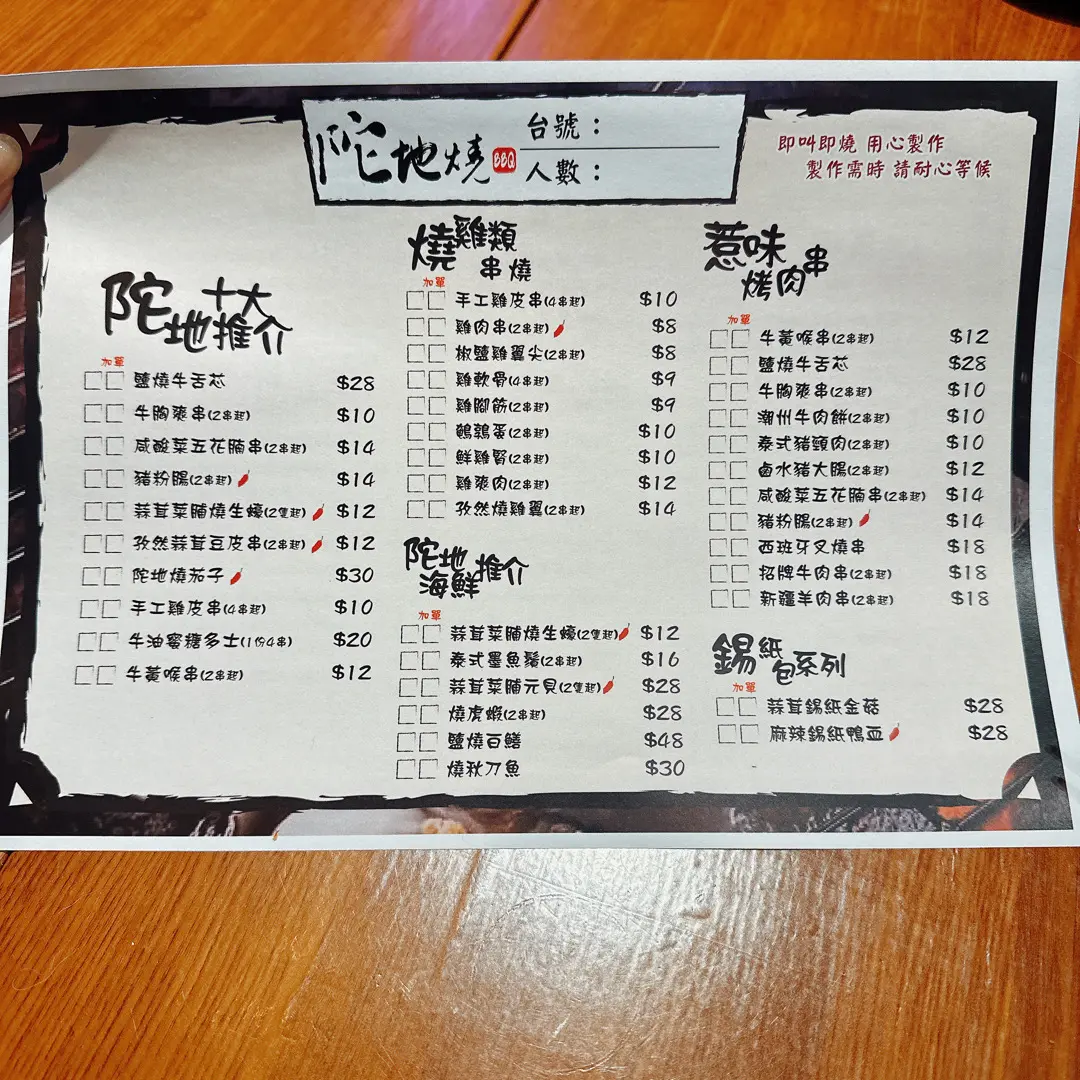 陀地燒 BBQ
台號：
人數：
即叫即燒 用心製作
製作需時 請耐心等候
陀地十大推介
加單
鹽燒牛舌芯 $28
牛胸爽串(2串起) $10
咸酸菜五花腩串(2串起) $14
豬粉腸(2串起) $14
蒜茸菜脯燒生蠔(2隻起) $12
孜然蒜茸豆皮串(2串起) $12
陀地燒茄子 $30
手工雞皮串(4串起) $10
牛油蜜糖多士(1份4串) $20
牛黃喉串(2串起) $12
燒雞類
串燒
加單
手工雞皮串(4串起) $10
雞肉串(2串起) $8
椒鹽雞翼尖(2串起) $8
雞軟骨(4串起) $9
雞腳筋(2串起) $9
鵪鶉蛋(2串起) $10
鮮雞腎(2串起) $10
雞爽肉(2串起) $12
孜然燒雞翼(2串起) $14
陀地
海鮮推介
加單
蒜茸菜脯燒生蠔(2隻起) $12
泰式墨魚鬚(2串起) $16
蒜茸菜脯元貝(2隻起) $28
燒虎蝦(2串起) $28
鹽燒白鱔 $48
燒秋刀魚 $30
惹味
烤肉串
加單
牛黃喉串(2串起) $12
鹽燒牛舌芯 $28
牛胸爽串(2串起) $10
潮州牛肉餅(2串起) $10
泰式豬頸肉(2串起) $10
鹵水豬大腸(2串起) $12
咸酸菜五花腩串(2串起) $14
豬粉腸(2串起) $14
西班牙叉燒串 $18
招牌牛肉串(2串起) $18
新疆羊肉串(2串起) $18
錫紙包系列
加單
蒜茸錫紙金菇 $28
麻辣錫紙鴨血 $28